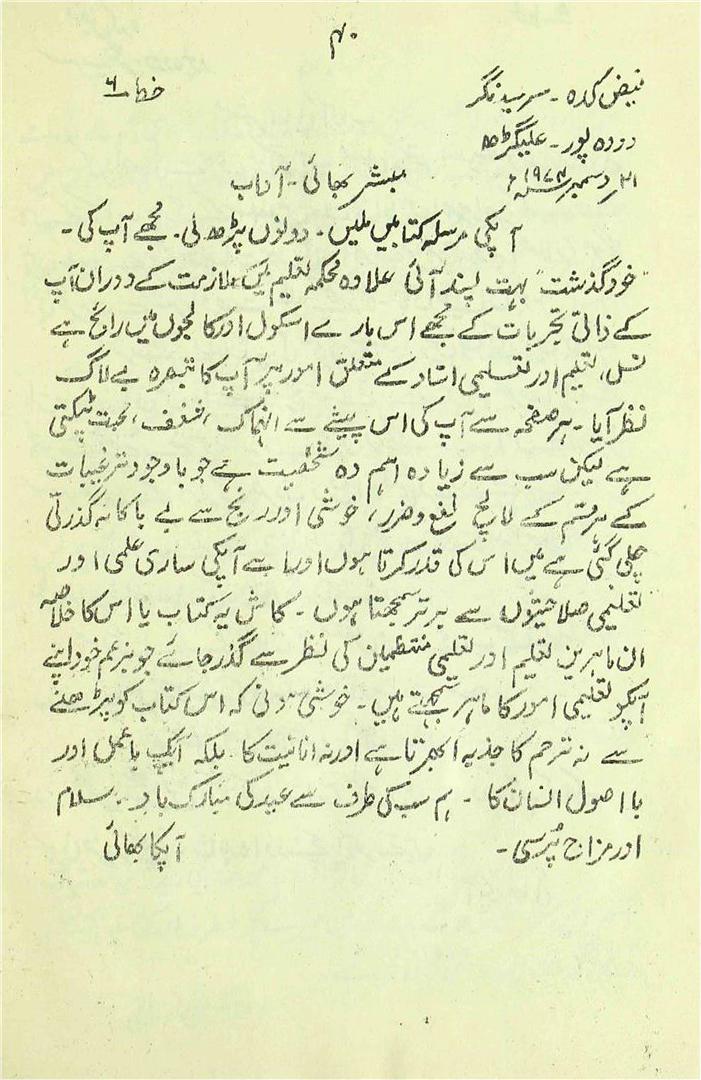 ۴۰
فیض کدہ - سرسید نگر خط ۶
دودہ پور - علیگڑھ
۲۱ دسمبر ۱۹۷۴ء
مبشر بھائی - آداب
آپکی مرسلہ کتابیں ملیں - دونوں پڑھ لی - مجھے آپ کی -
"خود گذشت" بہت پسند آئی علاوہ محکمہ تعلیم میں ملازمت کے دوران آپ
کے ذاتی تجربات کے مجھے اس بارے اسکول اور کالجوں میں رائج ہے
نسل، تعلیم اور تعلیمی استاد کے متعلق امور پر آپ کا تبصرہ بے لاگ
نظر آیا - ہر صفحہ سے آپ کی اس پیشے سے انہماک، شغف، محبت ٹپکتی
ہے لیکن سب سے زیادہ اہم وہ شخصیت ہے جو باوجود ترغیبات
کے ہر قسم کے لالچ نفع و ضرر، خوشی اور رنج سے بے باکانہ گذرتی
چلی گئی ہے میں اس کی قدر کرتا ہوں اور اسے آپکی ساری علمی اور
تعلیمی صلاحیتوں سے برتر سمجھتا ہوں - کاش یہ کتاب یا اس کا خلاصہ
ان ماہرین تعلیم اور تعلیمی منتظمین کی نظر سے گذر جائے جو بزعم خود اپنے
آپکو تعلیمی امور کا ماہر سمجھتے ہیں - خوشی ہوئی کہ اس کتاب کو پڑھنے
سے نہ ترحم کا جذبہ ابھرتا ہے اور نہ انانیت کا بلکہ ایک باعمل اور
با اصول انسان کا - ہم سب کی طرف سے عید کی مبارک باد - سلام
اور مزاج پُرسی - آپکا بھائی